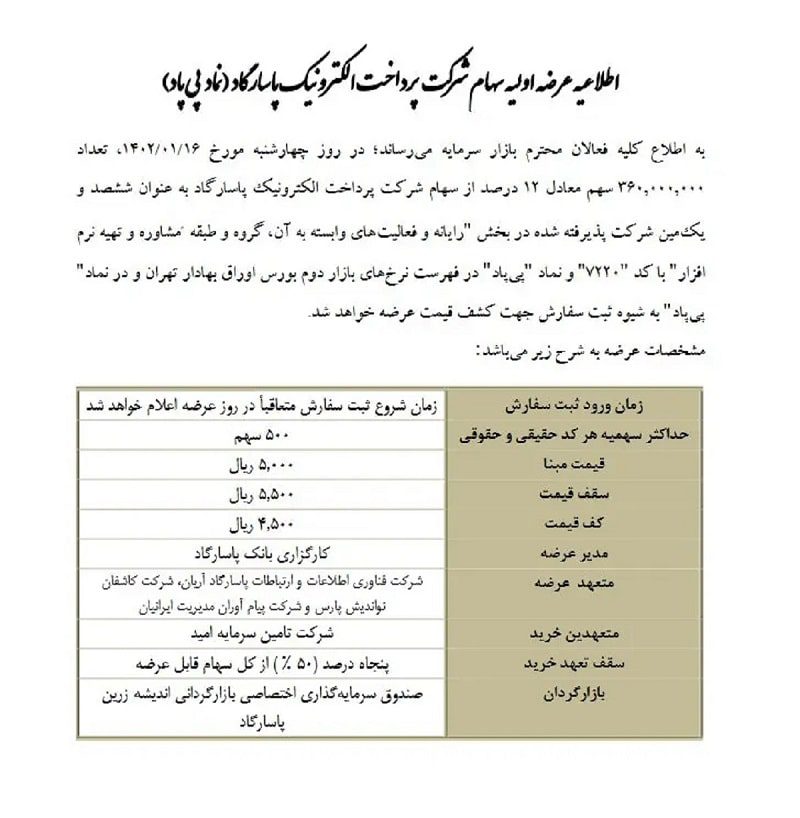 اطلاعیه عرضه اولیه سهام شرکت پرداخت الکترونیک پاسارگاد (نماد پی پاد)
به اطلاع کلیه فعالان محترم بازار سرمایه می‌رساند؛ در روز چهارشنبه مورخ ۱۴۰۲/۰۱/۱۶، تعداد
۳۶۰,۰۰۰,۰۰۰ سهم معادل ۱۲ درصد از سهام شرکت پرداخت الکترونیک پاسارگاد به عنوان ششصد و
یک‌مین شرکت پذیرفته شده در بخش "رایانه و فعالیت‌های وابسته به آن، گروه و طبقه "مشاوره و تهیه نرم
افزار" با کد "۷۲۲۰" و نماد "پی‌پاد" در فهرست نرخ‌های بازار دوم بورس اوراق بهادار تهران و در نماد"
پی‌پاد" به شیوه ثبت سفارش جهت کشف قیمت عرضه خواهد شد.
مشخصات عرضه به شرح زیر می‌باشد:
زمان ورود ثبت سفارش زمان شروع ثبت سفارش متعاقباً در روز عرضه اعلام خواهد شد
حداکثر سهمیه هر کد حقیقی و حقوقی ۵۰۰ سهم
قیمت مبنا ۵,۰۰۰ ریال
سقف قیمت ۵,۵۰۰ ریال
کف قیمت ۴,۵۰۰ ریال
مدیر عرضه کارگزاری بانک پاسارگاد
متعهد عرضه شرکت فناوری اطلاعات و ارتباطات پاسارگاد آریان، شرکت کاشفان
نواندیش پارس و شرکت پیام آوران مدیریت ایرانیان
متعهدین خرید شرکت تامین سرمایه امید
سقف تعهد خرید پنجاه درصد (۵۰ ٪) از کل سهام قابل عرضه
بازارگردان صندوق سرمایه‌گذاری اختصاصی بازارگردانی اندیشه زرین
پاسارگاد